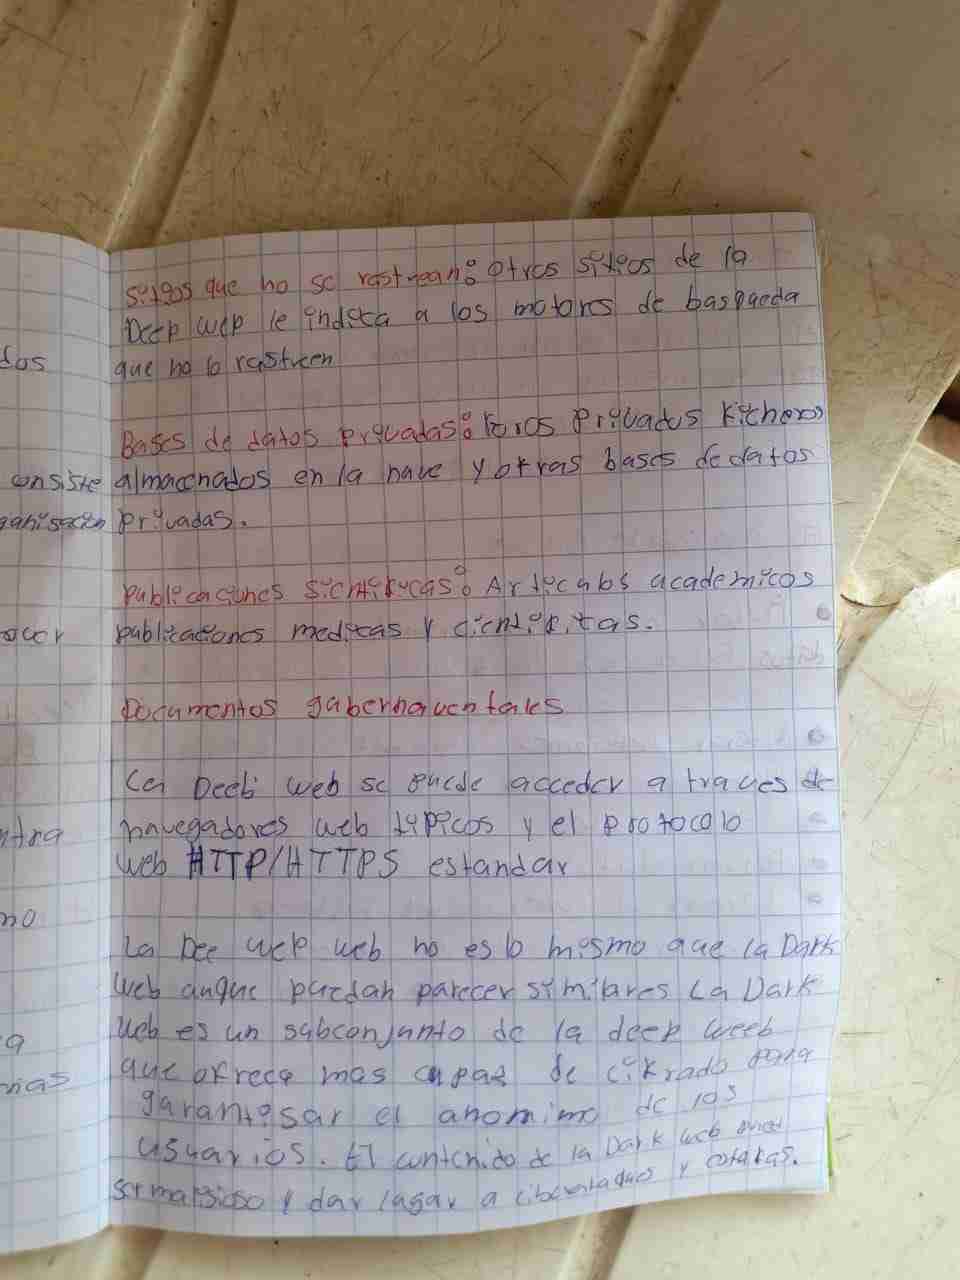 dos
onsiste
ganisación
ocer
ntra
no
a
nas
sitios que no se rastrean: otros sitios de la
Deep web le indica a los motores de busqueda
que no lo rastreen
Bases de datos privadas: foros privados ficheros
almacenados en la nave y otras bases de datos
privadas.
publicaciones sientificas: Articulos academicos
publicaciones medicas y cientificas.
Documentos gubernamentales
La Deeb web se puede acceder a traves de
navegadores web tipicos y el protocolo
web HTTP/HTTPS estandar
La Dee wep web no es lo mismo que la Dark
web auque puedan parecer similares La Dark
web es un subconjunto de la deep weeb
que ofrece mas capas de cifrado para
garantisar el anomimo de los
usuarios. El contenido de la Dark web
ser malisioso y dar lugar a y estafas.